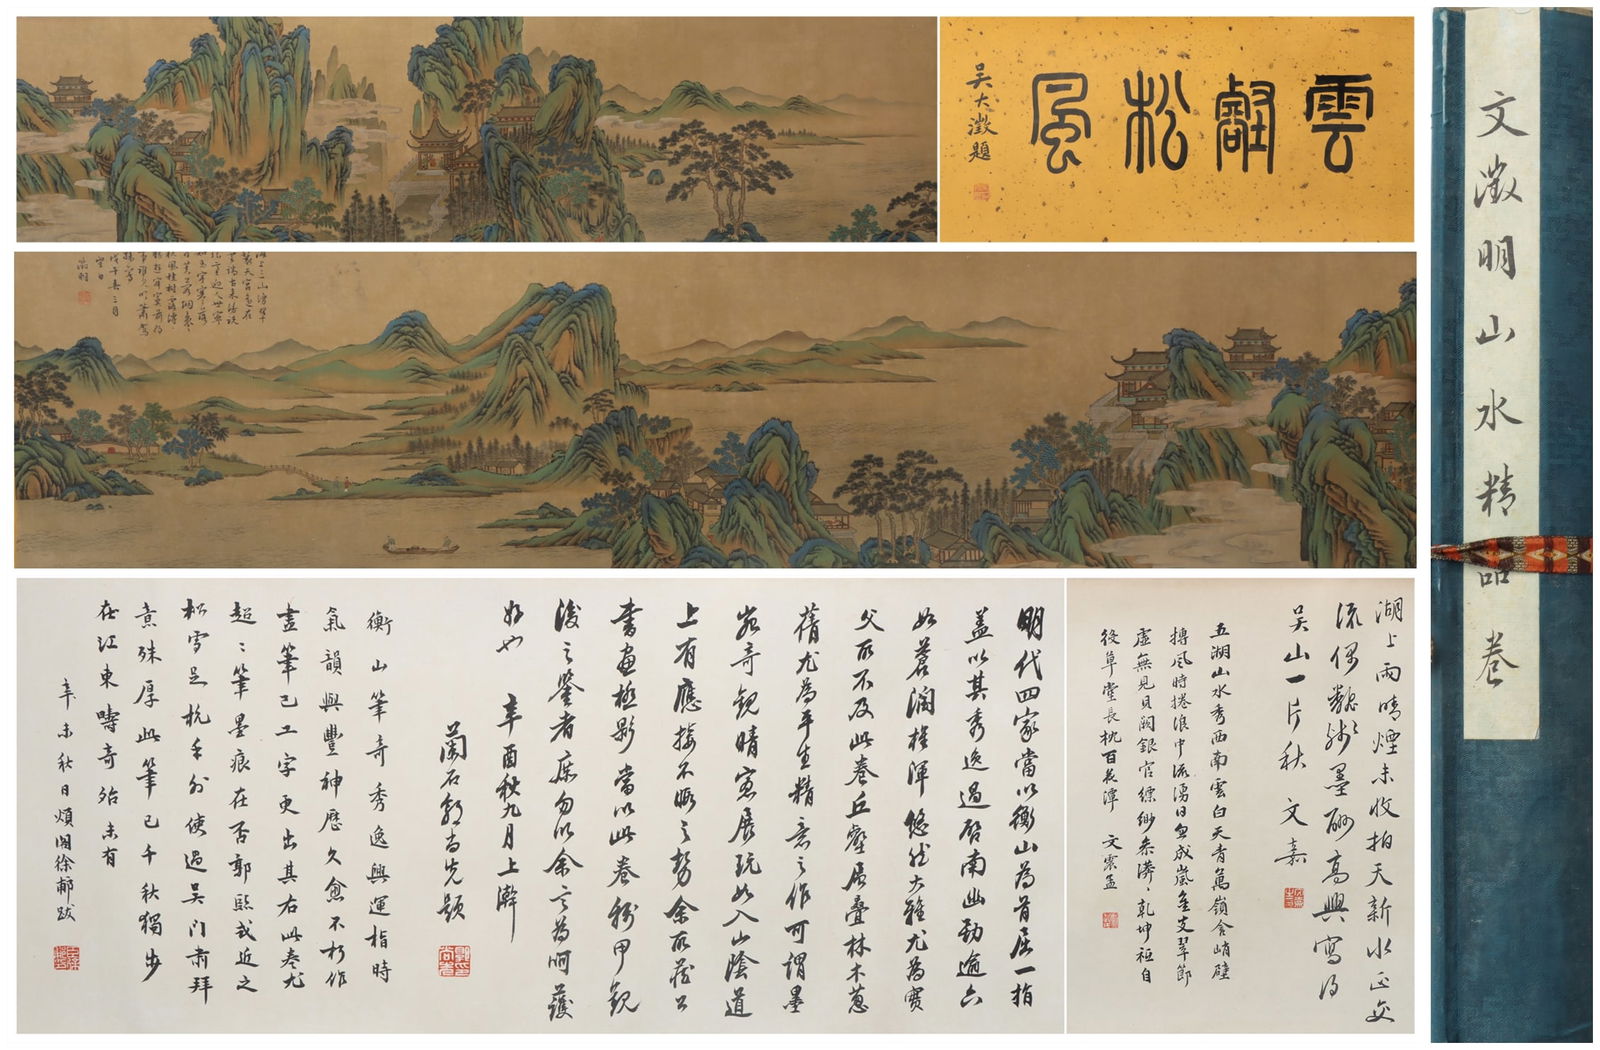 雲壑松風
吳大澂題
文徵明山水精品卷
湖上雨晴煙未收拍天新水正交
流偶飜殘墨酬高興寫得
吳山一片秋 文嘉
五湖山水秀西南雲白天青萬嶺含峭壁
搏風時捲浪中流湧日忽成嵐
虛無見貝闕銀宮縹緲
後草堂長枕百花潭 文震孟
明代四家當以衡山為首屈一指
蓋以其秀逸過石南幽勁逾六
如蒼潤雄渾悠然大雅尤為實
父所不及此卷丘壑層疊林木蔥
蒨尤為平生精意之作可謂墨
苑奇觀晴窗展玩如入山陰道
上有應接不暇之勢余所藏公
書畫極夥當以此卷稱甲觀
後之鑒者庶勿以余言為阿護
好也 辛酉秋九月上澣
蘭石郭尚先題
衡山筆奇秀逸興運指時
氣韻與豐神歷久愈不朽作
畫筆已工字更出其右此卷尤
超超筆墨痕在否郭熙或近之
松雪足抗手我使過吳門肅拜
意殊厚此筆已千秋獨步
在江東嗜奇殆未有
辛未秋日煩閣徐郙跋